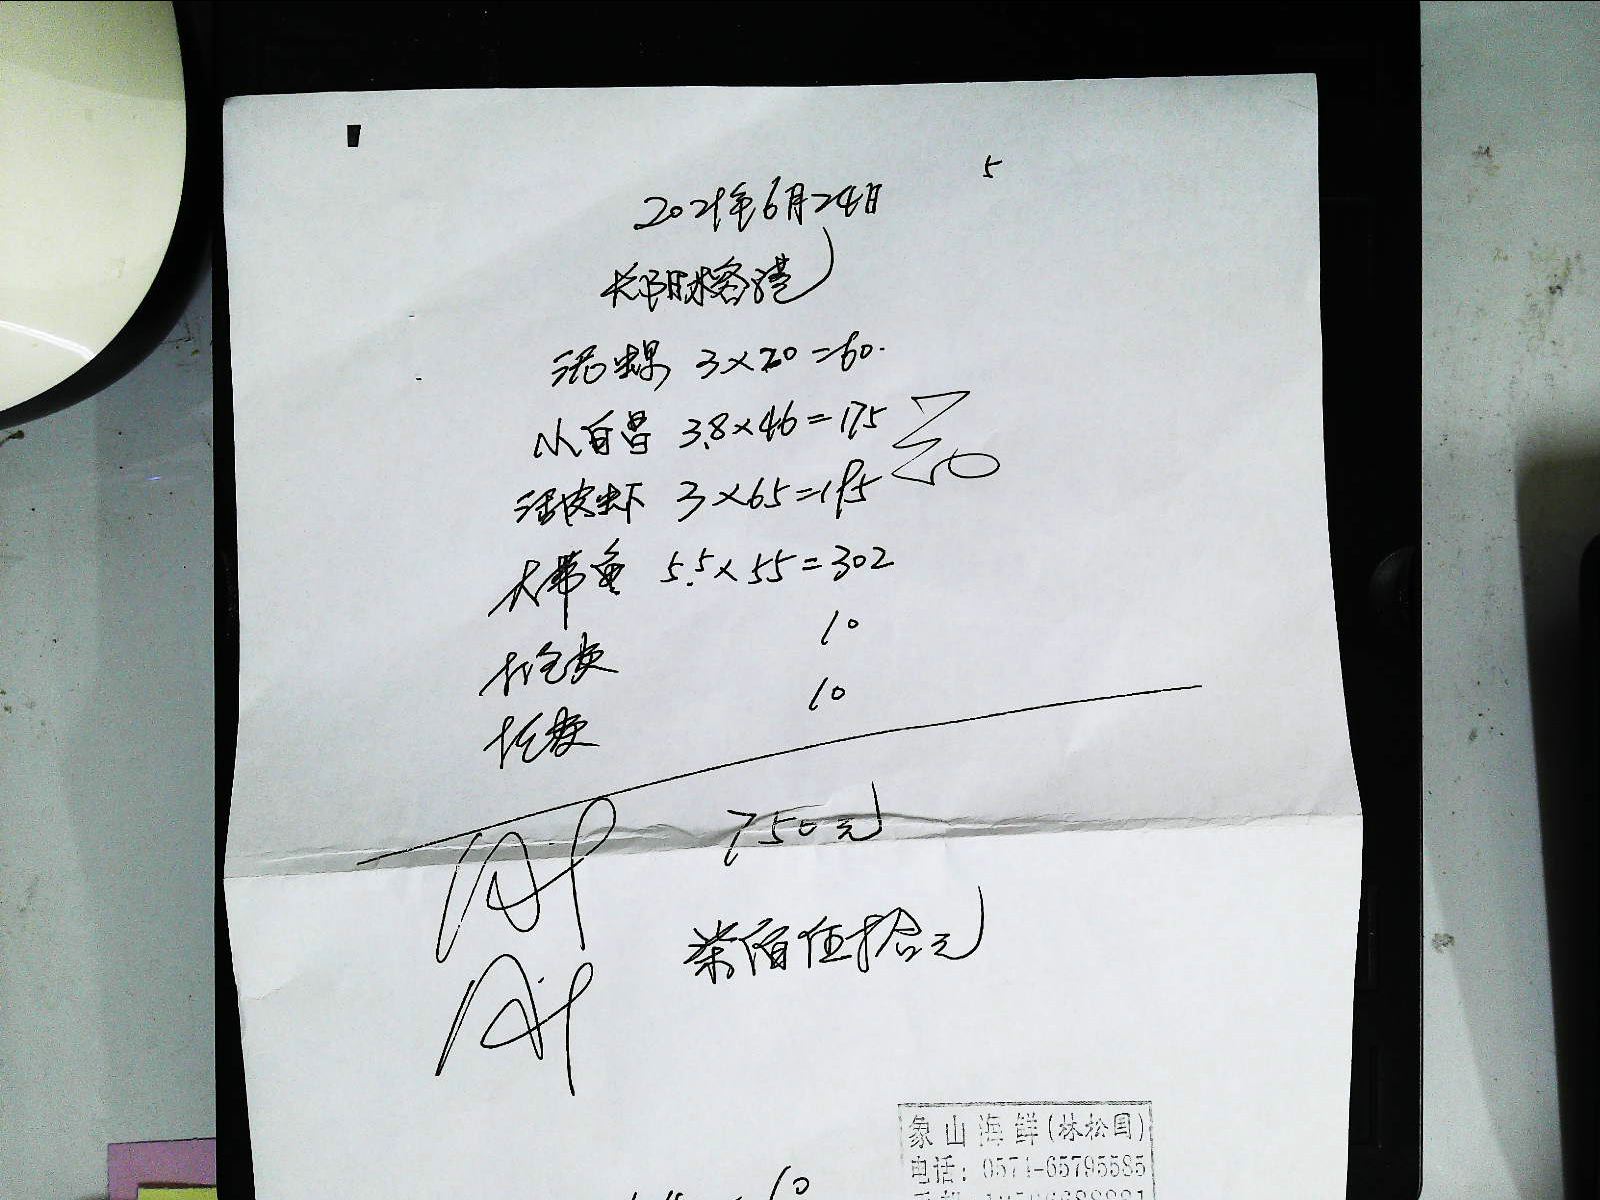 5
2021年6月24日
活虫果 3×20=60.
小白昌 3.8×46=175
活皮虾 3×65=195
大带鱼 5.5×55=302
打包费 10
10
750元
柒佰伍拾元
象山海鲜(林松国)
电话: 0574-65795585